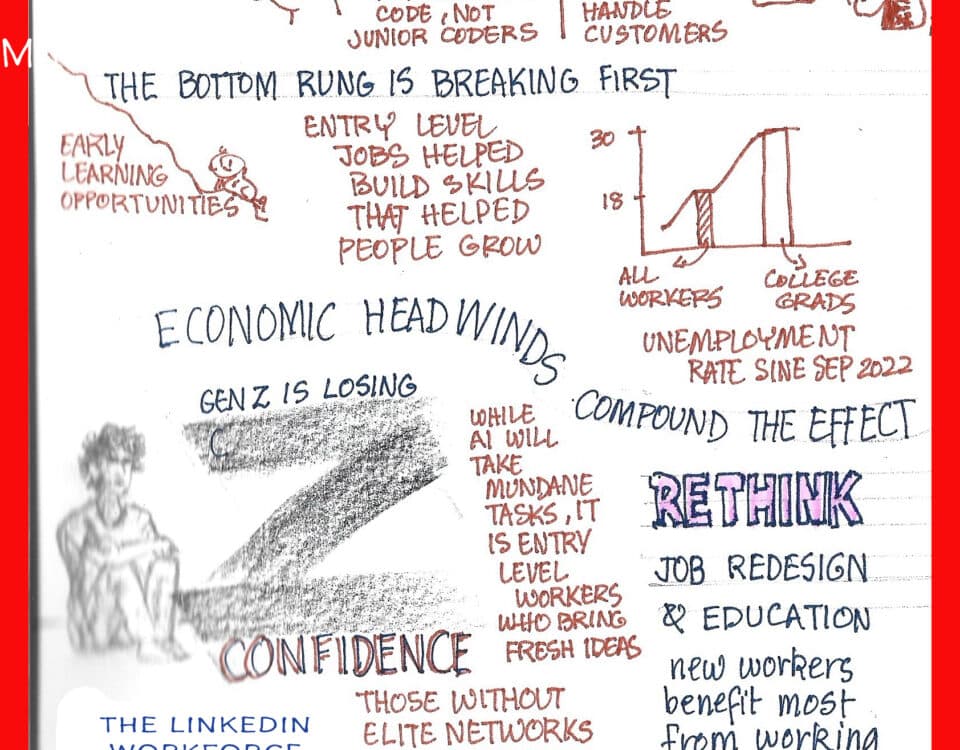 CODE, NOT
JUNIOR CODERS
HANDLE
CUSTOMERS
M
THE BOTTOM RUNG IS BREAKING FIRST
EARLY
LEARNING
OPPORTUNITIES
ENTRY LEVEL
JOBS HELPED
BUILD SKILLS
THAT HELPED
PEOPLE GROW
30
18
ALL
WORKERS
COLLEGE
GRADS
UNEMPLOYMENT
RATE SINE SEP 2022
ECONOMIC HEADWINDS
COMPOUND THE EFFECT
GEN Z IS LOSING
C
Z
CONFIDENCE
WHILE
AI WILL
TAKE
MUNDANE
TASKS, IT
IS ENTRY
LEVEL
WORKERS
WHO BRING
FRESH IDEAS
RETHINK
JOB REDESIGN
& EDUCATION
new workers
benefit most
from working
THOSE WITHOUT
ELITE NETWORKS
THE LINKEDIN
WORKFORCE